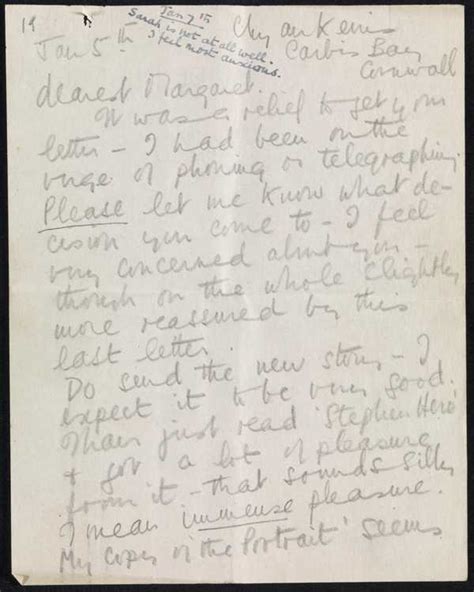 19
Jan 7th
Sarah is not at all well.
I feel most anxious.
Chy an Kerris
Jan 5th
Carbis Bay
Cornwall
dearest Margaret.
It was a relief to get your
letter – I had been on the
verge of phoning or telegraphing.
Please let me know what de-
cision you come to – I feel
very concerned about you –
though on the whole slightly
more reassured by this
last letter.
Do send the new story – I
expect it to be very good.
I have just read 'Stephen Hero'
& got a lot of pleasure
from it – that sounds silly
I mean immense pleasure.
My copy of 'the Portrait' seems